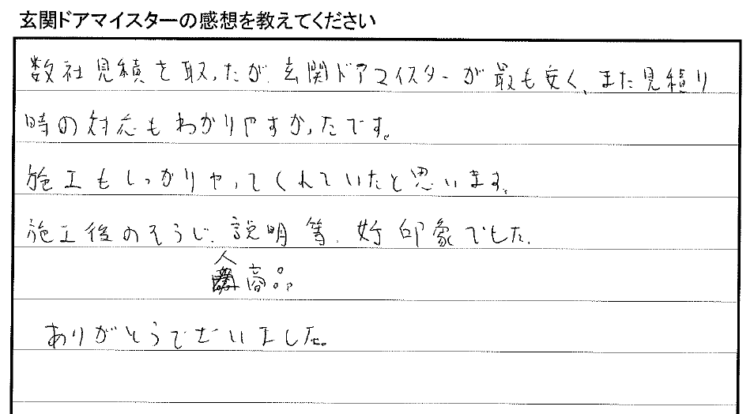 玄関ドアマイスターの感想を教えてください
数社見積を取ったが、玄関ドアマイスターが最も安く、また見積り
時の対応もわかりやすかったです。
施工もしっかりやってくれていたと思います。
施工後のそうじ、説明等、好印象でした。
人 商品
ありがとうございました。